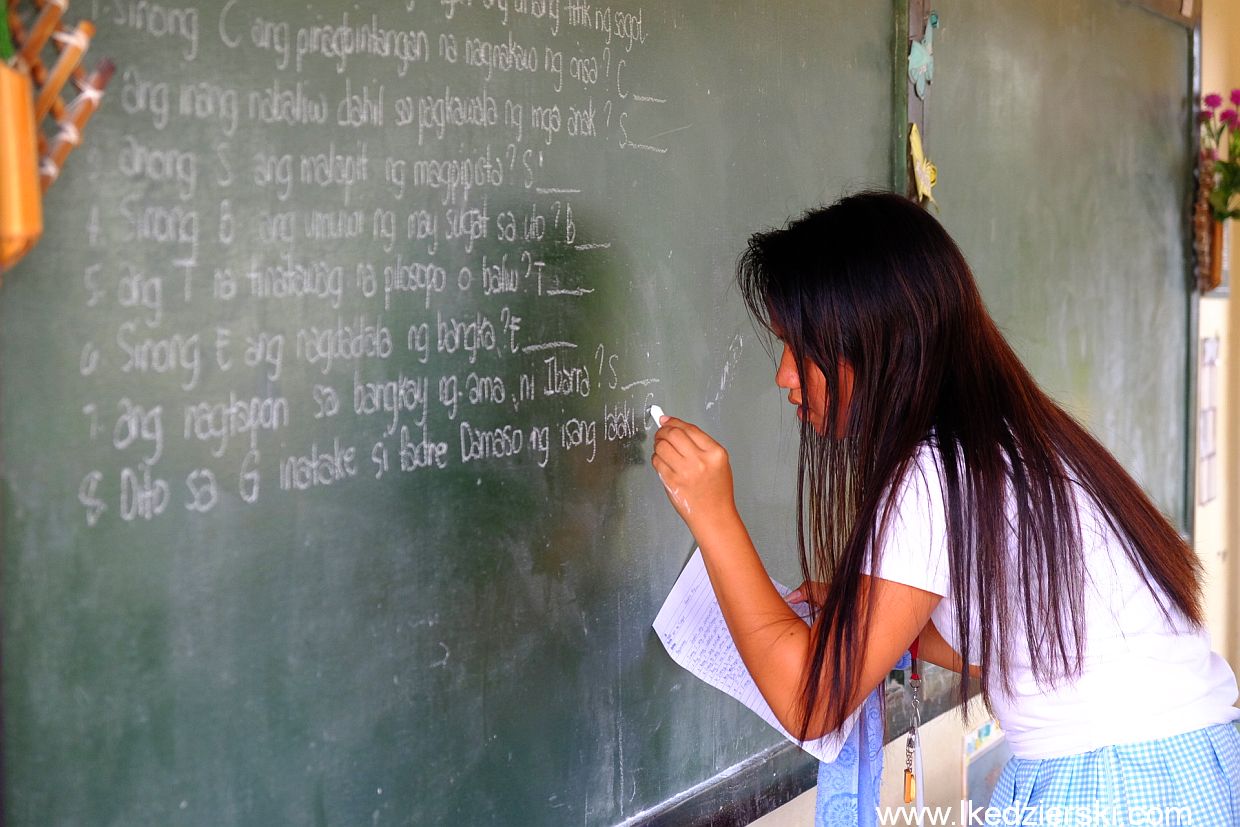 ng unang titik ng sagot.
1. Sinong C ang pinagbintangan na nagnakaw ng onsa? C____
ang inang nabaliw dahil sa pagkawala ng mga anak? S____
3. anong S ang malapit ng magpipista? S____
4. Sinong B ang umuwi ng may sugat sa ulo? B____
5. ang T na tinatawag na pilosopo o baliw? T____
6. Sinong E ang nagdadala ng bangka? E____
7. ang nagtapon sa bangkay ng ama, ni Ibarra? S____
8. Dito sa G inatake si Padre Damaso ng isang lalaki. G
www.lkedzierski.com